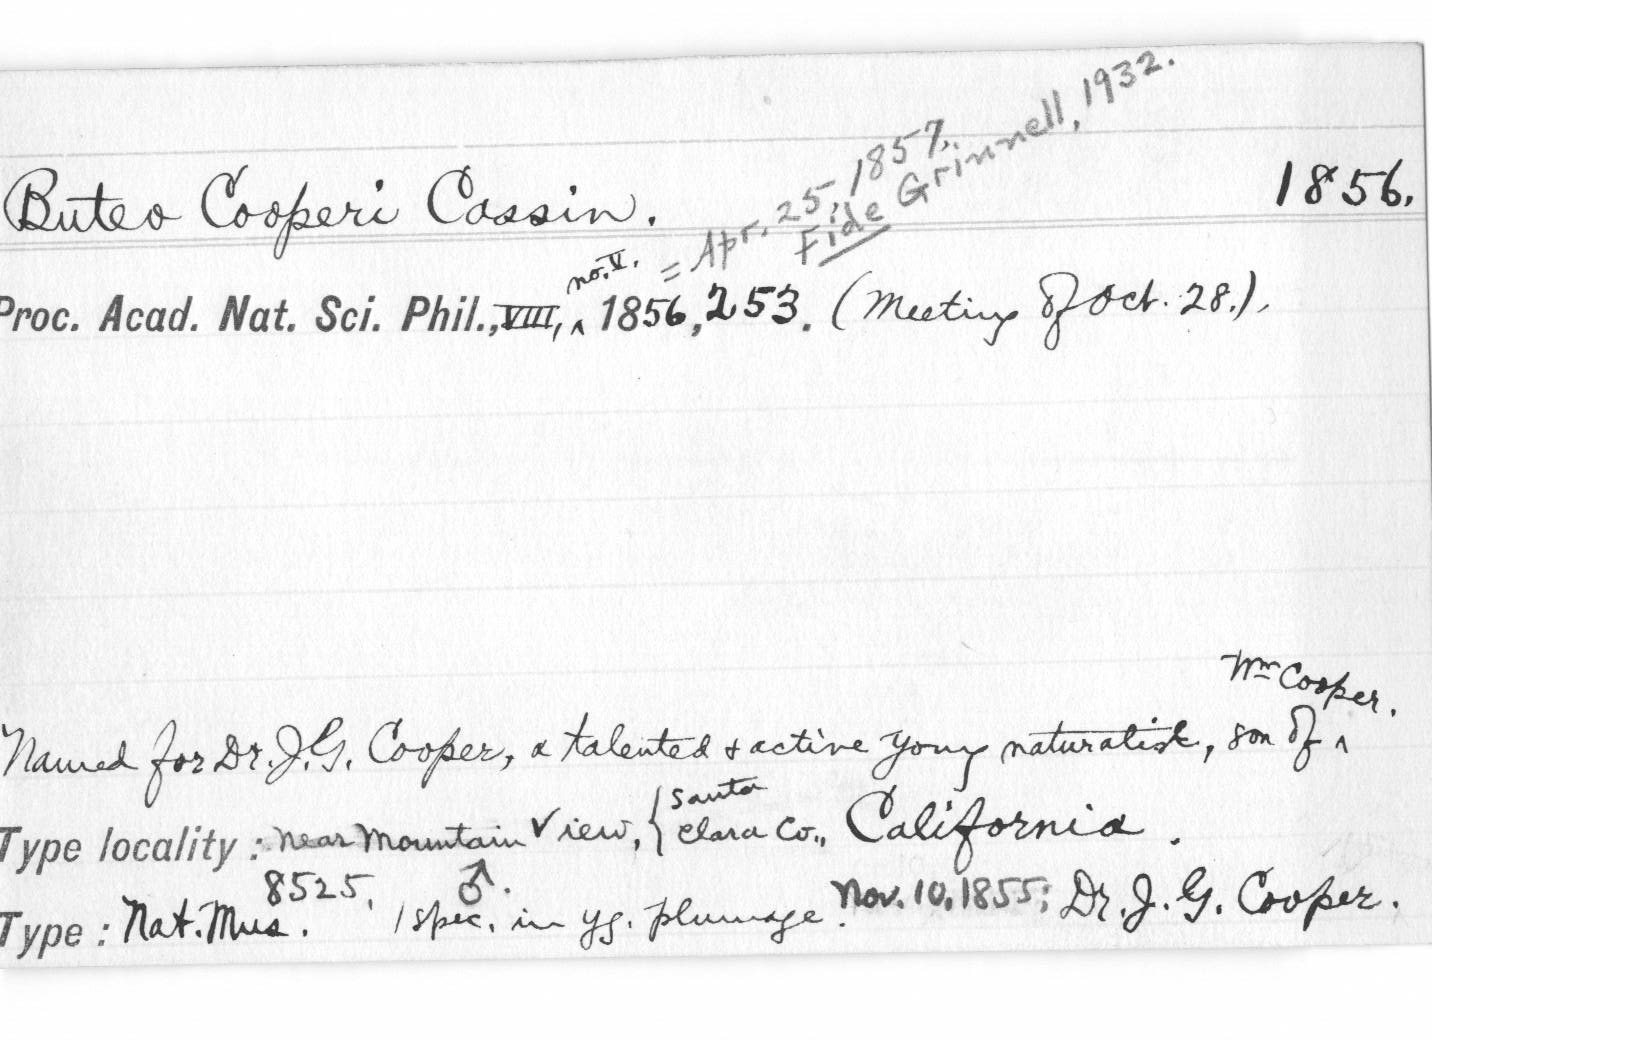 = Apr. 25, 1857,
Fide Grinnell, 1932.
Buteo Cooperi Cassin. 1856.
no. V.
Proc. Acad. Nat. Sci. Phil., VIII, ^ 1856, 253. (Meeting of Oct. 28.).
Wm Cooper.
Named for Dr. J. G. Cooper, a talented & active young naturalist, son of ^
Santa
Type locality : near Mountain View, { Clara Co., California.
8525. ♂.
Type : Nat. Mus. 1 spec. in yg. plumage. Nov. 10, 1855; Dr. J. G. Cooper.